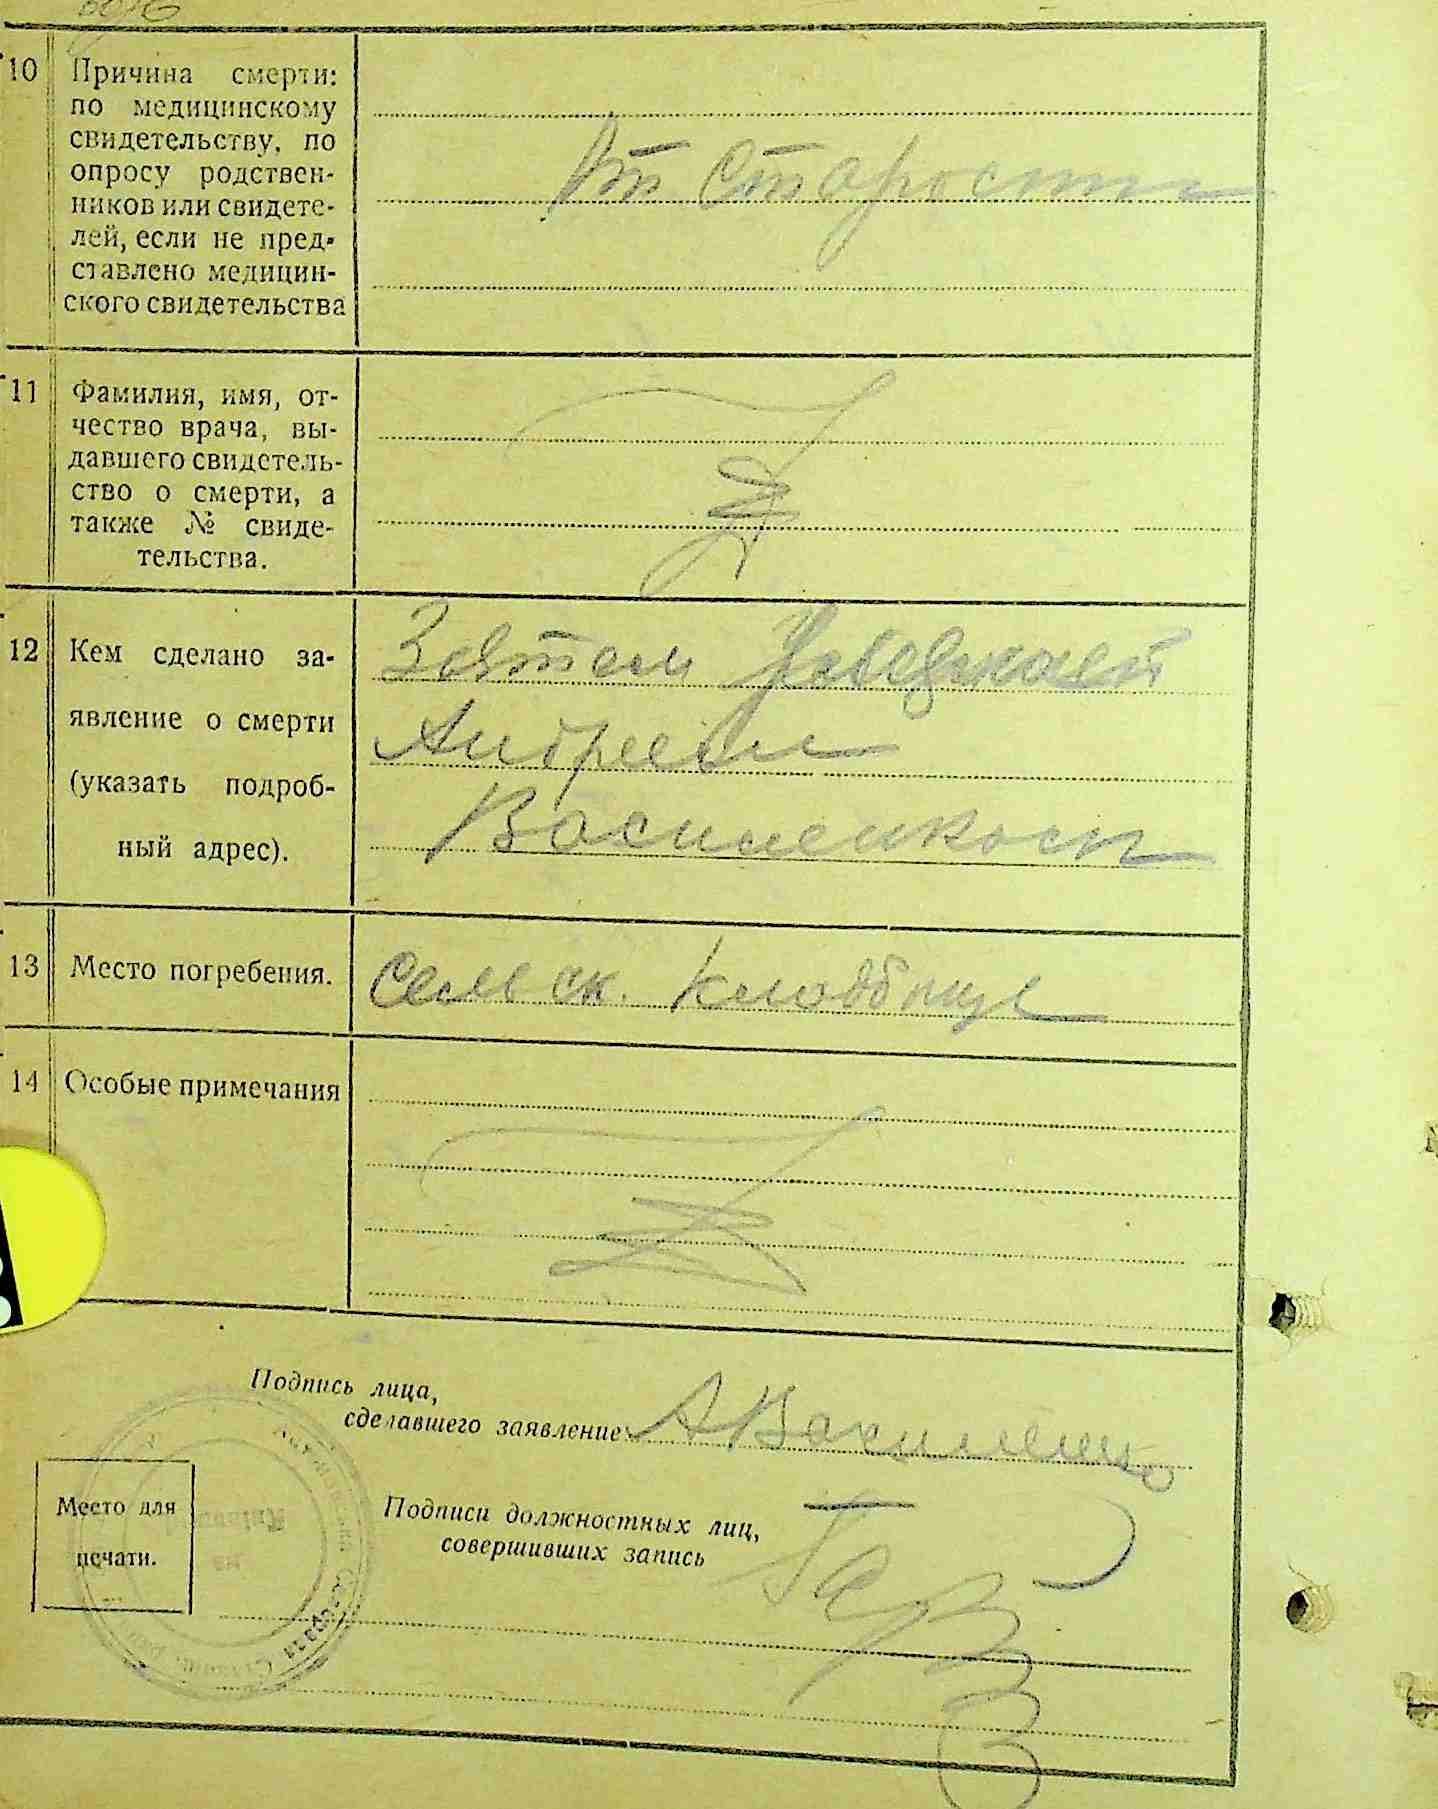 10 Причина смерти:
по медицинскому
свидетельству, по
опросу родствен-
ников или свидете-
лей, если не пред-
ставлено медицин-
ского свидетельства
От Старости
11 Фамилия, имя, от-
чество врача, вы-
давшего свидетель-
ство о смерти, а
также № свиде-
тельства.
12 Кем сделано за-
явление о смерти
(указать подроб-
ный адрес).
Зятем
Андреем
Василенком
13 Место погребения.
Сельск. Кладбище
14 Особые примечания
Подпись лица,
сделавшего заявление
АВасиленко
Место для
печати.
Подписи должностных лиц,
совершивших запись